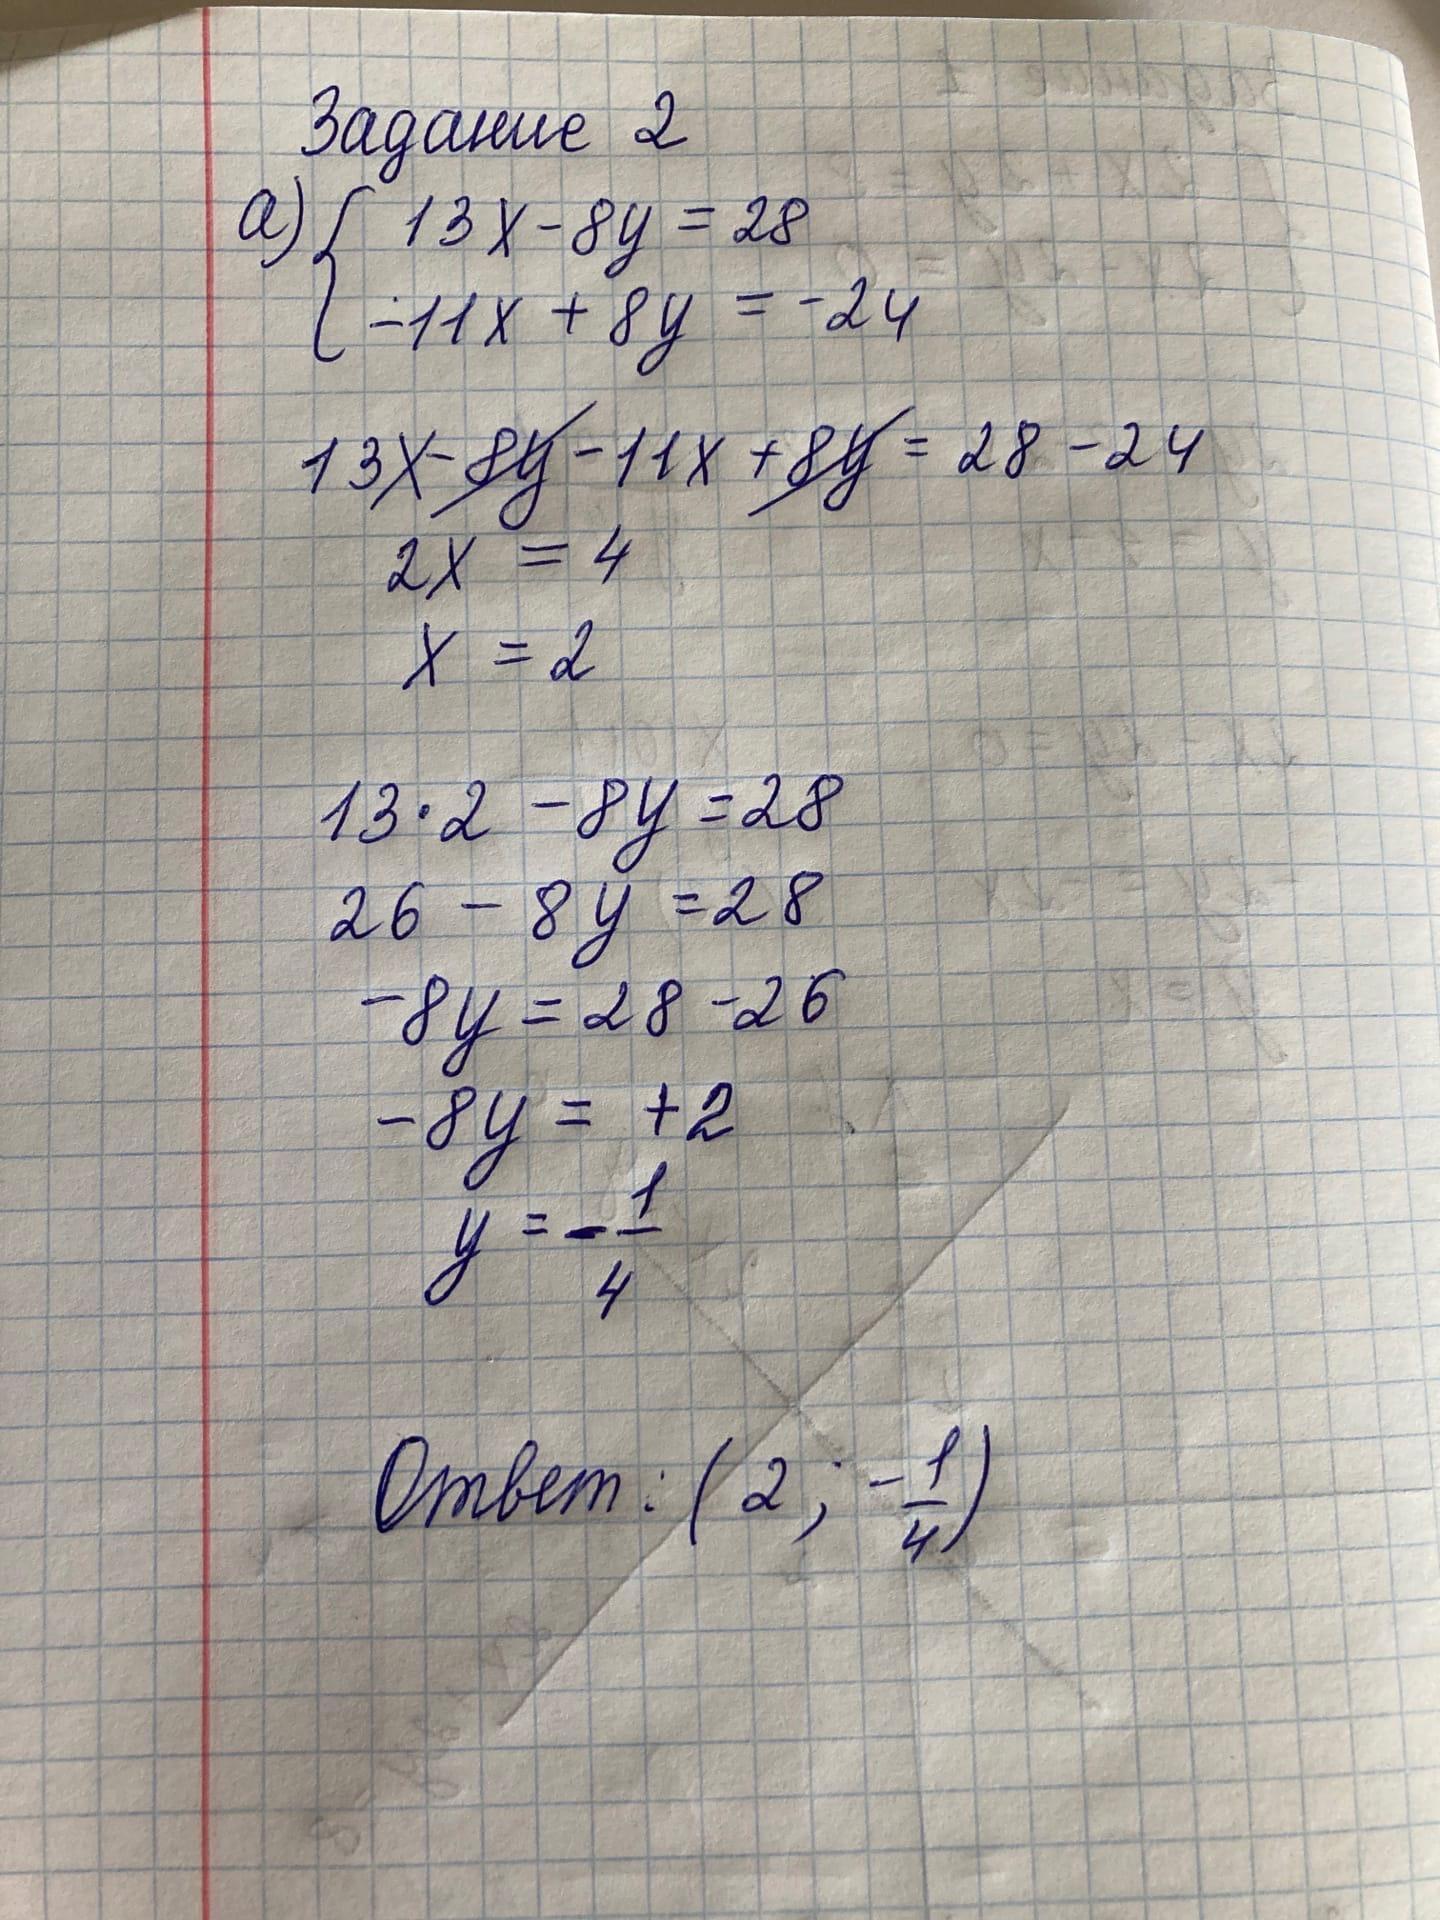 Задание 2
а) { 13x - 8y = 28
-11x + 8y = -24
13x - 8y - 11x + 8y = 28 - 24
2x = 4
x = 2
13 · 2 - 8y = 28
26 - 8y = 28
-8y = 28 - 26
-8y = +2
y = -1/4
Ответ: (2; -1/4)